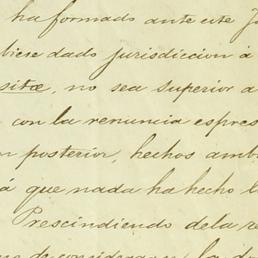 ha formado ante este
biese dado jurisdiccion á
sitæ, no sea superior a
con la renuncia espres
n posterior, hechos amb
á que nada ha hecho
Prescindiendo de la re